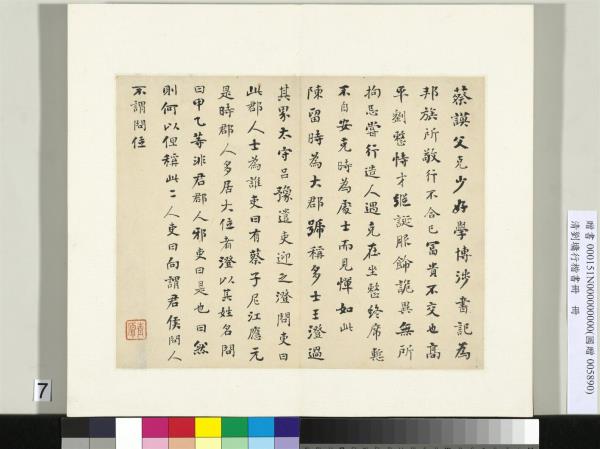 蔡謨父克少好學博涉書記為
邦族所敬行不合己富貴不交也高
平劉整恃才縱誕服飾詭異無所
拘忌嘗行造人遇克在坐整終席慙
不自安克時為處士而見憚如此
陳留時為大郡號稱多士王澄過
其界太守呂豫遣吏迎之澄問吏曰
此郡人士為誰吏曰有蔡子尼江應元
是時郡人多居大位者澄以其姓名問
曰甲乙等非君郡人邪吏曰是也曰然
則何以但稱此二人吏曰向謂君侯問人
不謂問位
贈書 000151N000000000(國贈 005890)
清劉墉行楷書冊 冊
7